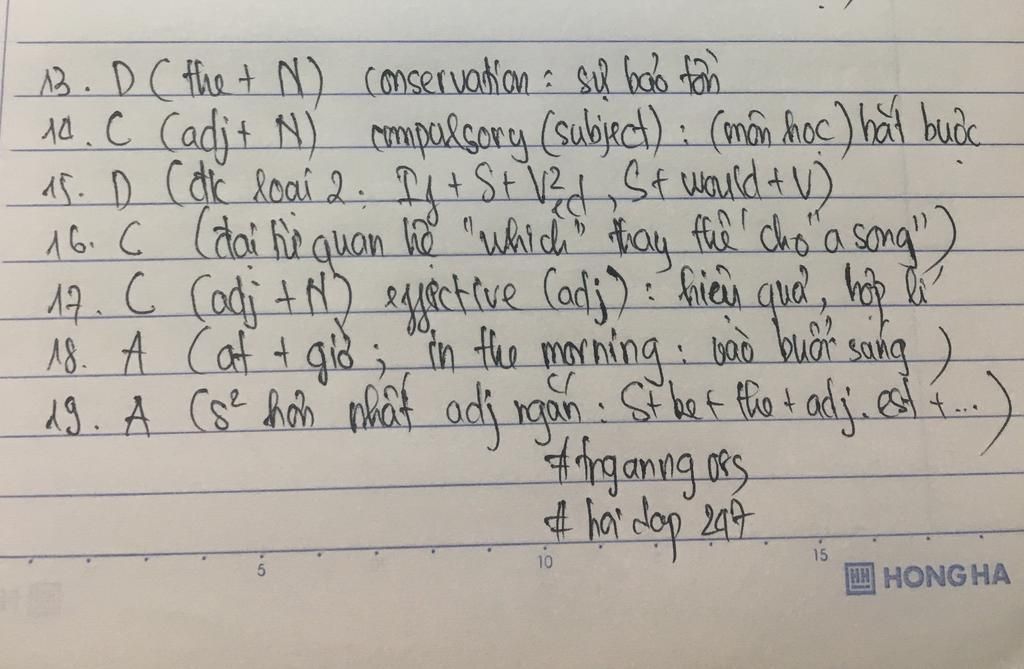 13. D (the + N) conservation : sự bảo tồn
14. C (adj + N) compulsory (subject) : (môn học) bắt buộc
15. D (đk loại 2 : If + S + V2/ed, S + would + V)
16. C (đại từ quan hệ "which" thay thế cho "a song")
17. C (adj + N) effective (adj) : hiệu quả, hợp lí
18. A (at + giờ ; in the morning : vào buổi sáng)
19. A (s² hơn nhất adj ngắn : S + be + the + adj.est + ...)
# hoi dap 247
5 10 15
HH HONG HA